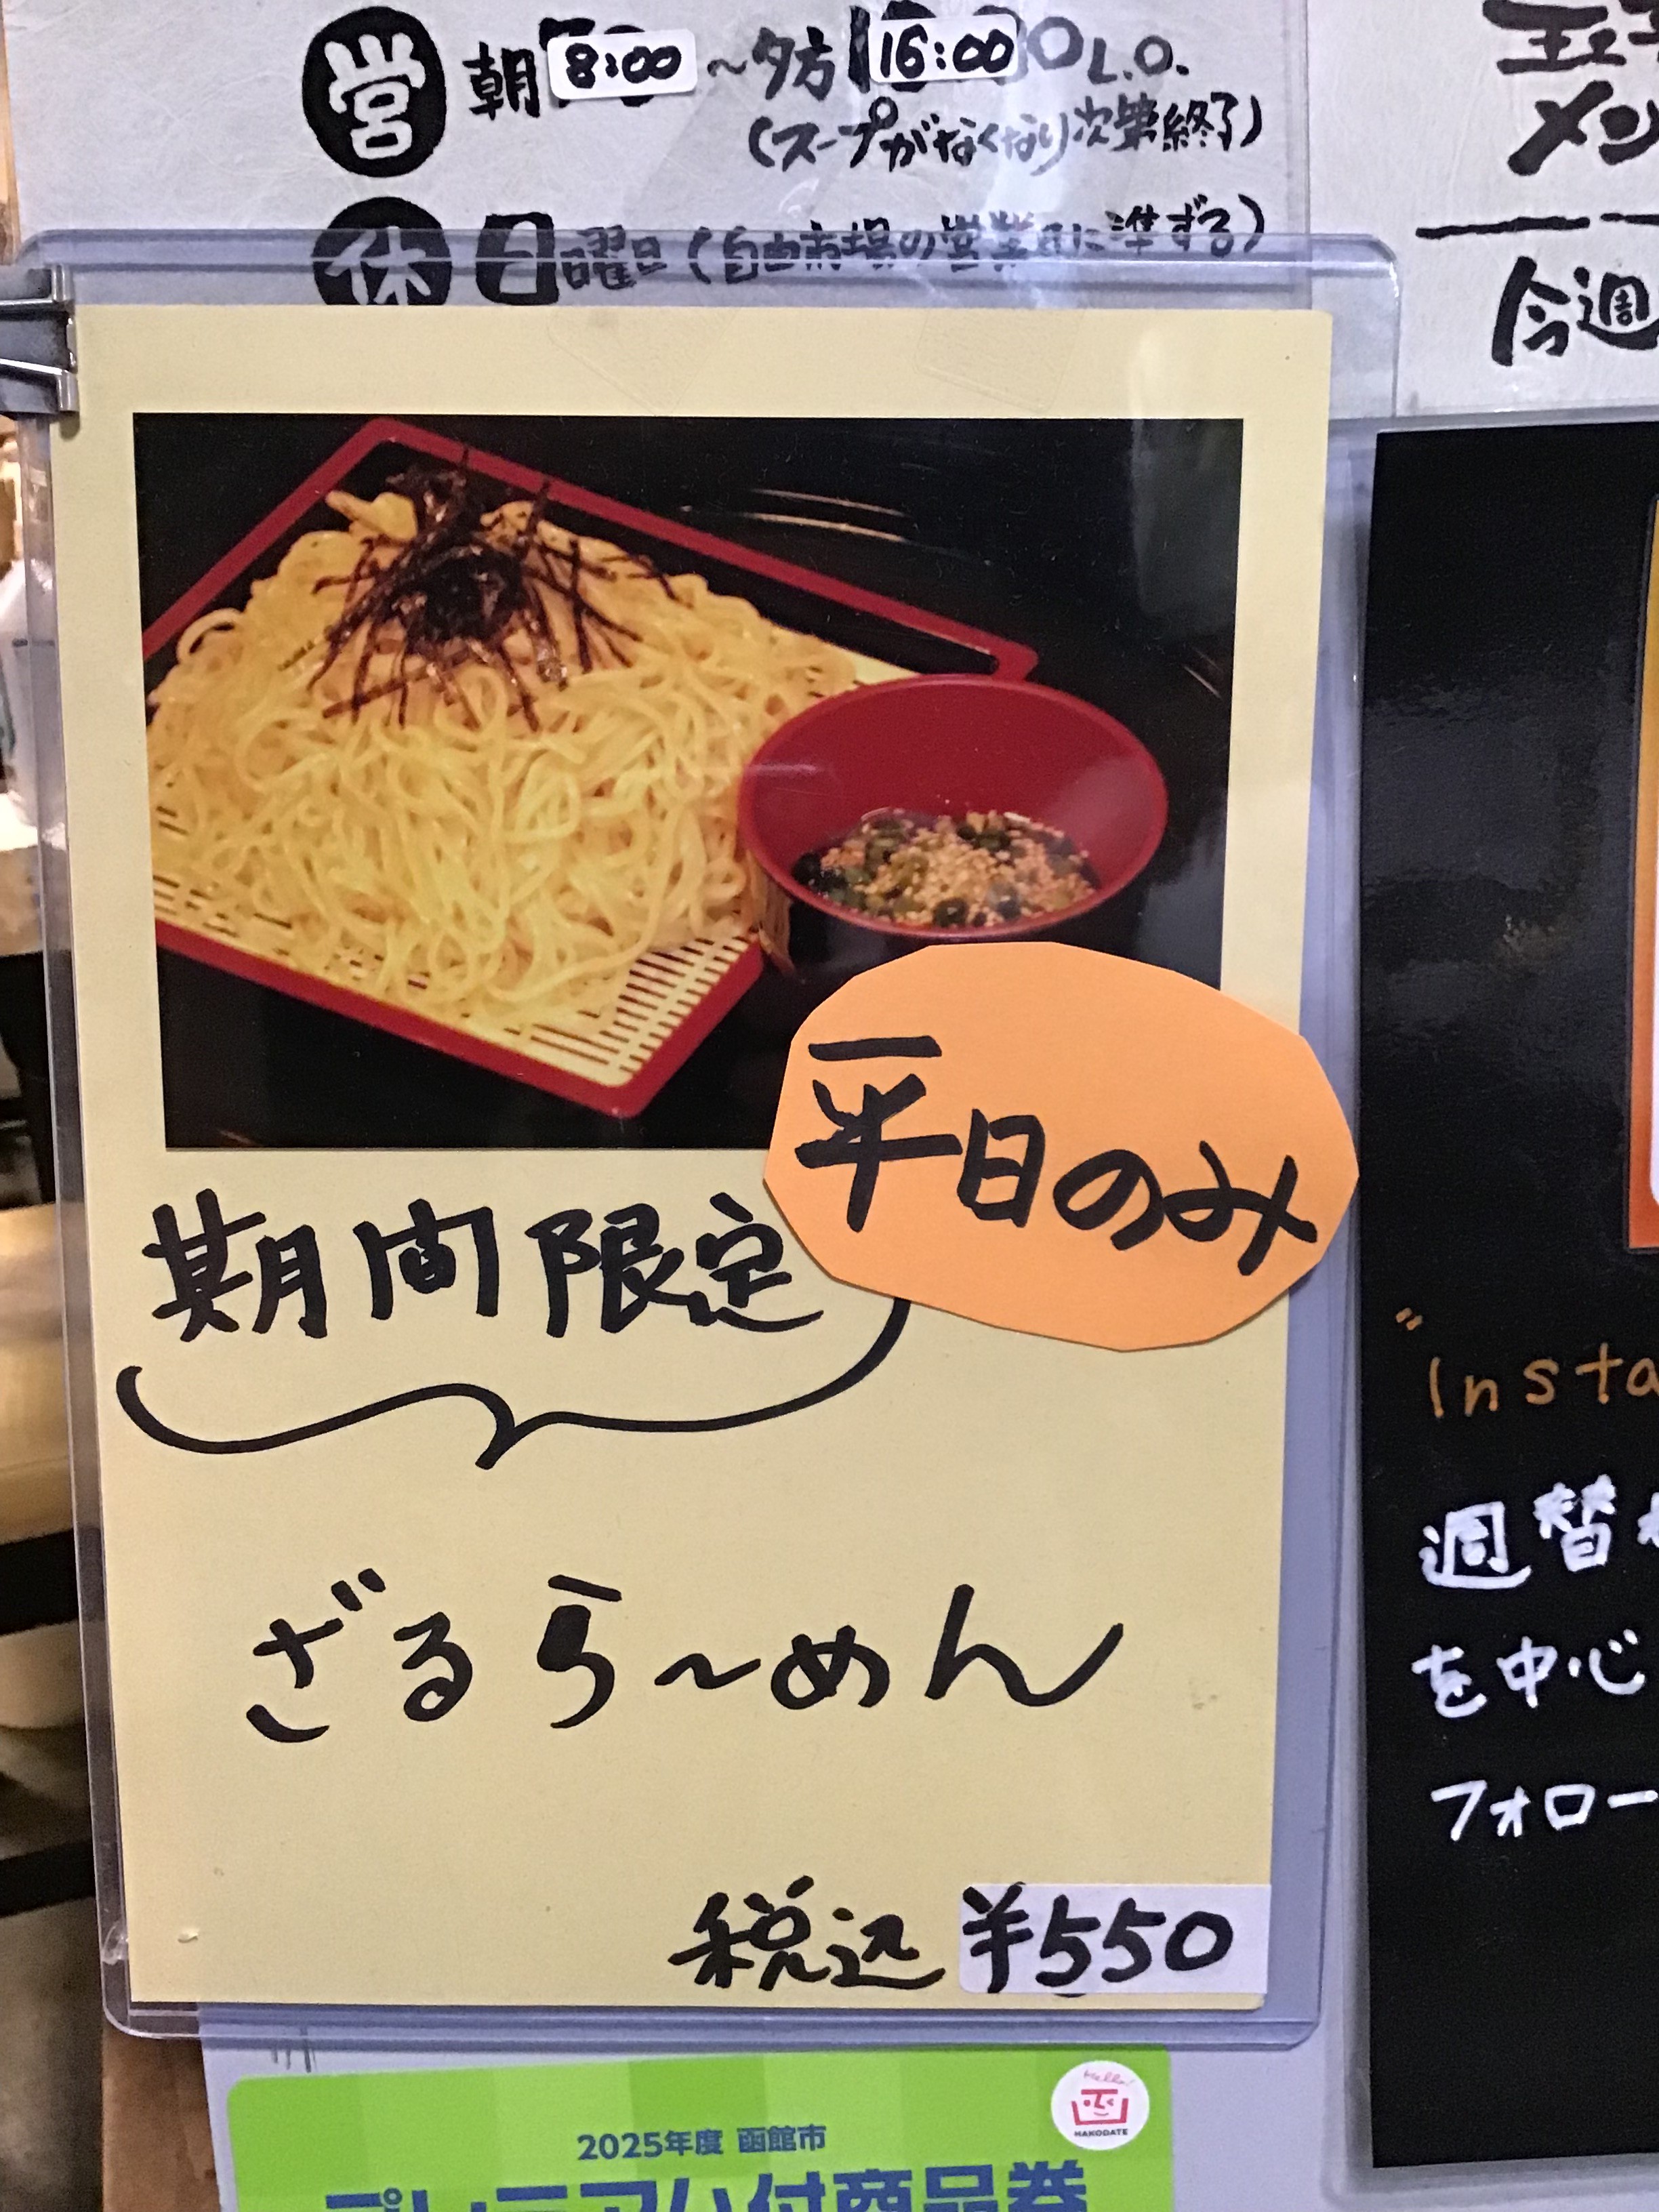 営 朝8:00～夕方16:00 L.O.
(スープがなくなり次第終了)
休 日曜日(自由市場の営業日に準ずる)
メン
今週
平日のみ
期間限定
ざるら～めん
税込 ¥550
"Insta
週替
を中心
フォロー
Hello!
HAKODATE
2025年度 函館市
プレミアム付商品券